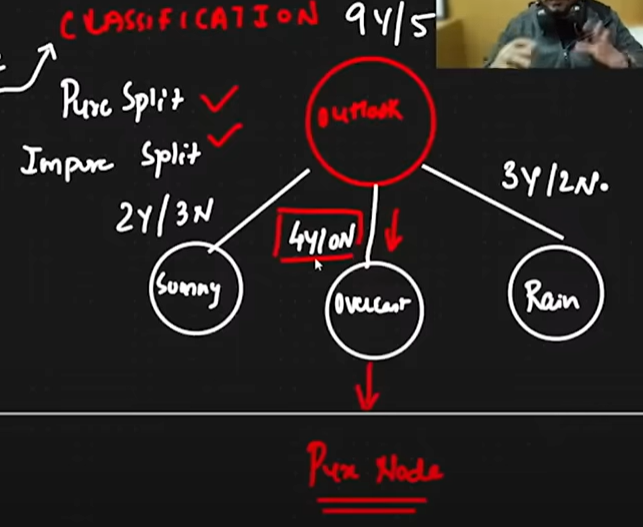 CLASSIFICATION 9Y/5
Pure Split
Impure Split
Outlook
2Y/3N
4Y/0N
3Y/2N.
Sunny
Overcast
Rain
Pure Node